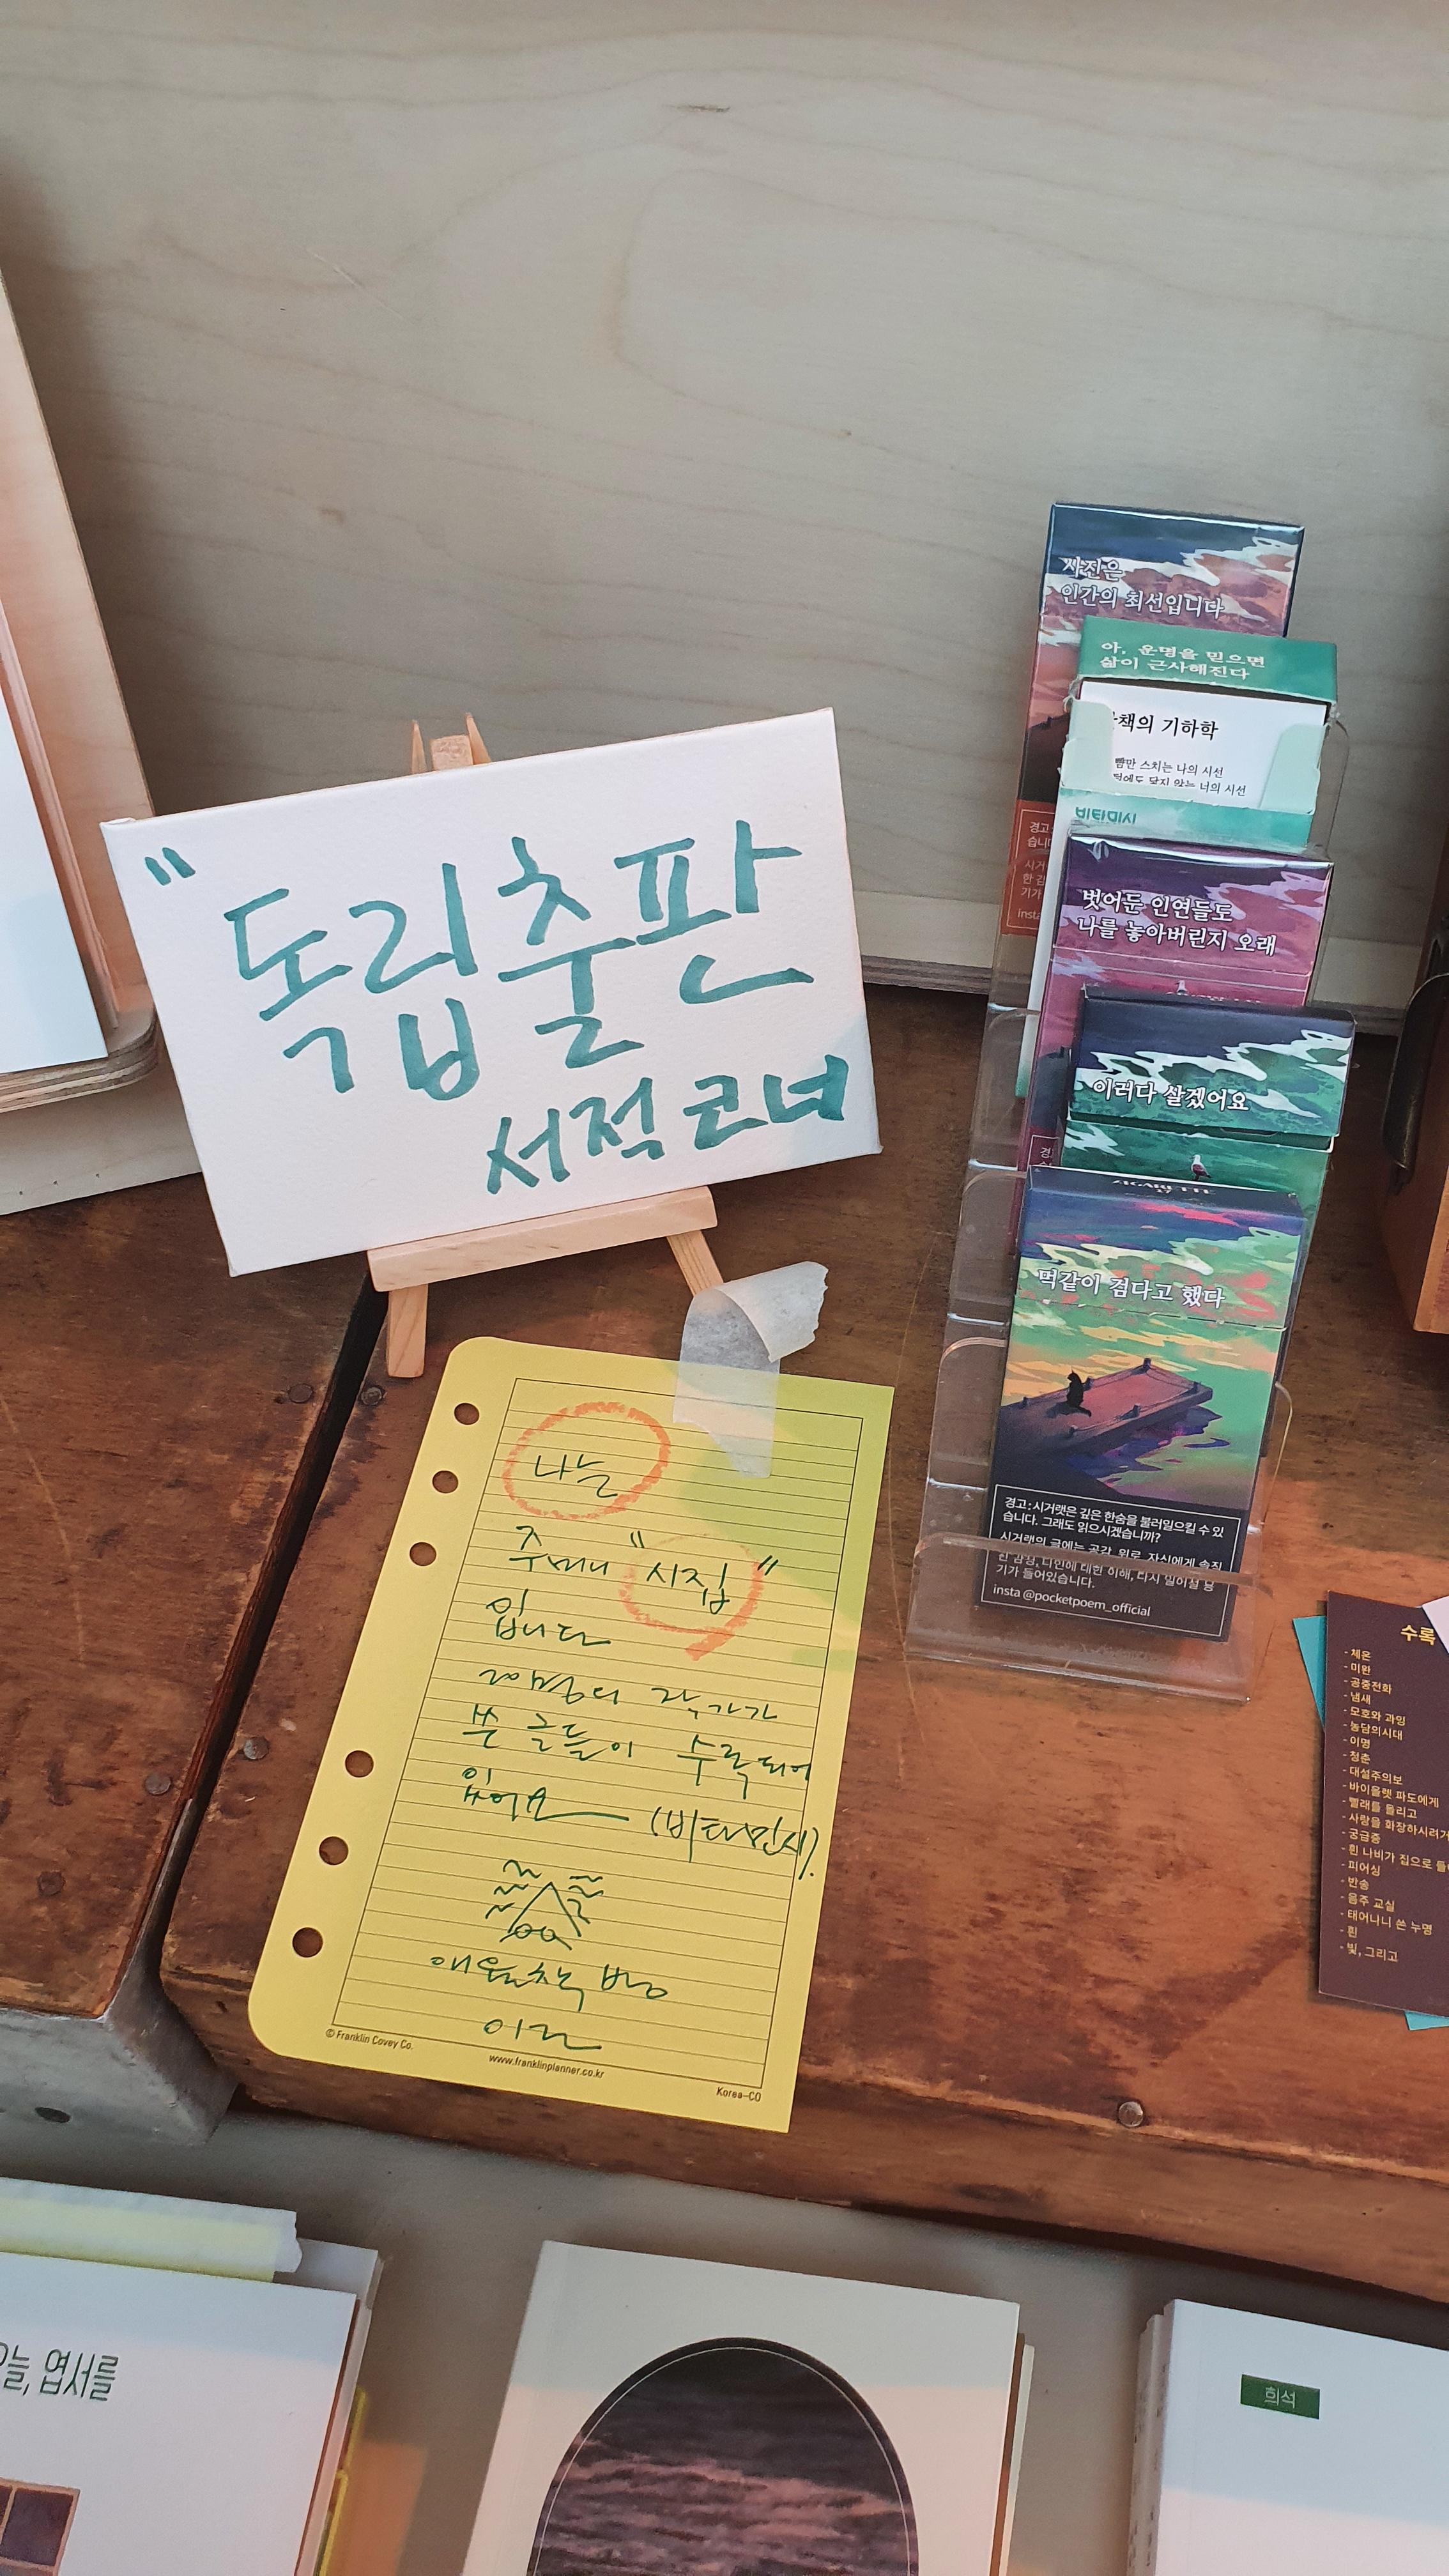 "독립출판
서적 코너
나는
주머니 "시집"
입니다
20명의 작가가
쓴 글들이 수록되어
있어요 (비타민시).
애월책방
이로
© Franklin Covey Co.
www.franklinplanner.co.kr
Korea-CO
사진은
인간의 최선입니다
경고:
습니
시거
한 감
기가
insta
아, 운명을 믿으면
삶이 근사해진다
책의 기하학
뺨만 스치는 나의 시선
에도 닿지 않는 너의 시선
비타미시
벗어둔 인연들도
나를 놓아버린지 오래
이러다 살겠어요
CIGARETTE
먹같이 검다고 했다
경고:시거랫은 깊은 한숨을 불러일으킬 수 있
습니다. 그래도 읽으시겠습니까?
시거랫의 글에는 공감, 위로, 자신에게 솔직
한 감정, 타인에 대한 이해, 다시 일어설 용
기가 들어있습니다.
insta @pocketpoem_official
수록
- 체온
- 미완
- 공중전화
- 냄새
- 모호와 과잉
- 농담의시대
- 이명
- 청춘
- 대설주의보
- 바이올렛 파도에게
- 빨래를 돌리고
- 사랑을 화장하시려거
- 궁금증
- 흰 나비가 집으로 들
- 피어싱
- 반송
- 음주 교실
- 태어나니 쓴 누명
- 흰
- 빛, 그리고
오늘, 엽서를
희석